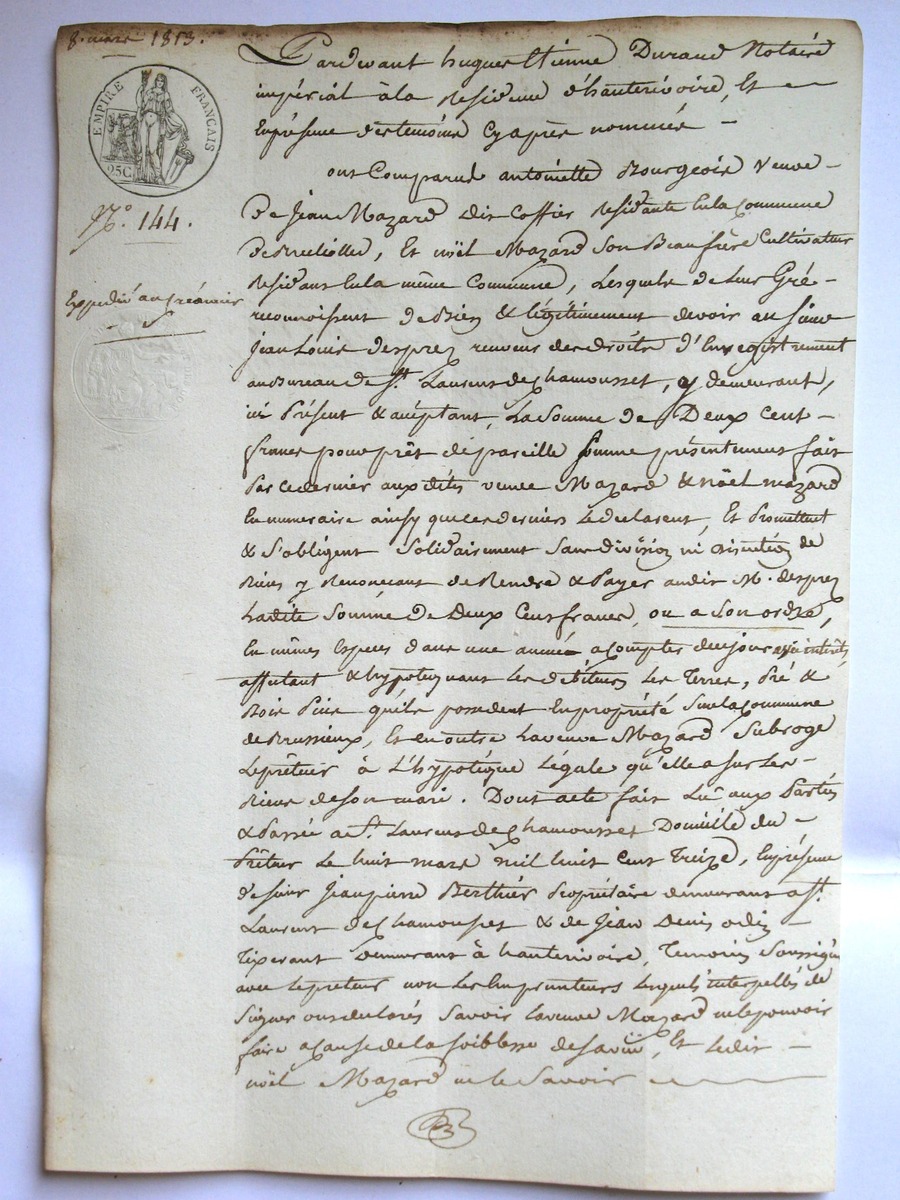 8. mars 1813.
EMPIRE FRANÇAIS
25C.
N.° 144.
Expedié au créancier
Pardevant hugues Etienne Durand Notaire
impérial à la Residence d'hauterivoire, Et
En présence des temoins Cy après nommés –
ont Comparus antoinette Bourgeois Veuve –
De Jean Mazard dit Coffier Residante En la Commune
de Brullioles, Et noël Mazard Son Beaufrère Cultivateur
Residant En la même Commune, Lesquels de Leur Gré –
reconnoissent de Bien & légitimement devoir au sieur
Jean Louis Desprez receveur des droits d'Enregistrement
au Bureau de St. Laurent de Chamousset, y demeurant,
ici Présent & acceptant, La Somme de Deux Cent –
francs pour prêt de pareille Somme présentement fait
Par ce dernier aux dits veuve Mazard & noël mazard
En numeraire ainsy que ces derniers Le déclarent, Et Promettent
& S'obligent Solidairement Sans division ni discution de
Biens y Renoncant de Rendre & Payer audit M. desprez
Ladite Somme de Deux Cent francs, ou a Son ordre,
En mêmes Especes dans une année a Compter de ce jour avec intérêts
affectant & hypotequant Les débiteurs Les Terres, Pré &
Bois Pins qu'ils possedent En propriété Sur la Commune
de Brussieux, Et en outre La veuve Mazard Subroge
Le prêteur à L'hypotèque Légale qu'elle a sur Les –
Biens de Son mari. Dont acte fait Lu aux Parties
& Passé a St. Laurent de Chamousset Domicile du –
Prêteur Le huit mars mil huit Cent Treize, En présence
de sieur Jean pierre Berthier Propriétaire demeurant a St.
Laurent de Chamousset & de Jean Denis odin –
Tixerant Demeurant à hauterivoire, Temoins Soussignés
avec Le preteur non Les Emprunteurs Lesquels interpellés de
Signer ont déclarés Savoir La veuve Mazard ne le pouvoir
faire a Cause de la foiblesse de sa vüe, Et Ledit –
noël Mazard ne le Savoir